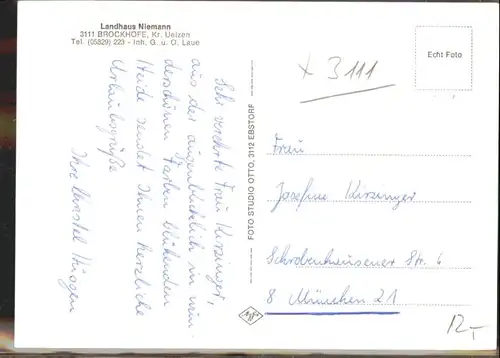 Landhaus Niemann
3111 BROCKHÖFE, Kr. Uelzen
Tel. (05829) 223 - Inh. G. u. O. Laue
Sehr verehrte Frau Kirzinger,
aus der augenblicklich in wun-
derschönen Farben blühenden
Heide sendet Ihnen herzliche
Urlaubsgrüße
Ihre
FOTO STUDIO OTTO, 3112 EBSTORF
x 3111
Echt Foto
Frau
Josefine Kirzinger
Schrobenhausener Str. 6
8 München 21
12,-